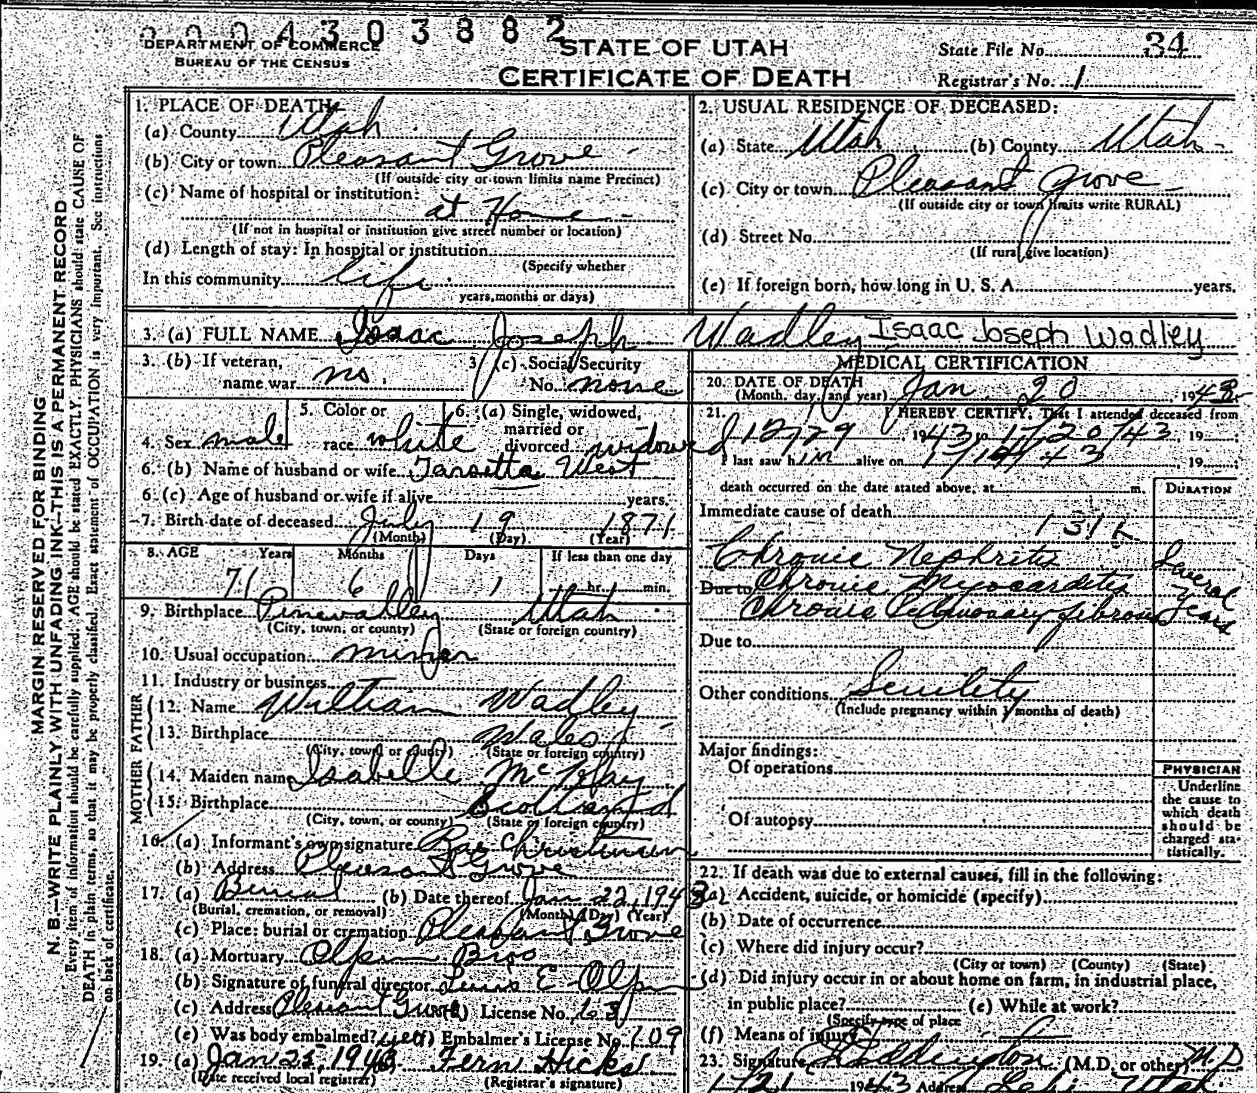 0004303882
DEPARTMENT OF COMMERCE
BUREAU OF THE CENSUS
STATE OF UTAH
CERTIFICATE OF DEATH
State File No. 34
Registrar's No. 1
MARGIN RESERVED FOR BINDING
N. B.—WRITE PLAINLY WITH UNFADING INK—THIS IS A PERMANENT RECORD
Every item of information should be carefully supplied. AGE should be stated EXACTLY. PHYSICIANS should state CAUSE OF
DEATH in plain terms, so that it may be properly classified. Exact statement of OCCUPATION is very important. See instructions
on back of certificate.
1. PLACE OF DEATH
(a) County Utah
(b) City or town Pleasant Grove
(If outside city or town limits name Precinct)
(c) Name of hospital or institution:
at Home
(If not in hospital or institution give street number or location)
(d) Length of stay: In hospital or institution
(Specify whether
In this community life
years, months or days)
2. USUAL RESIDENCE OF DECEASED:
(a) State Utah (b) County Utah
(c) City or town Pleasant Grove
(If outside city or town limits write RURAL)
(d) Street No.
(If rural give location)
(e) If foreign born, how long in U. S. A. years.
3. (a) FULL NAME Isaac Joseph Wadley Isaac Joseph Wadley
3. (b) If veteran, name war no.
3. (c) Social Security No. none
4. Sex male
5. Color or race white
6. (a) Single, widowed, married or divorced widowed
6. (b) Name of husband or wife Tarsetta West
6. (c) Age of husband or wife if alive years.
7. Birth date of deceased July 19 1871
(Month) (Day) (Year)
8. AGE Years Months Days If less than one day
71 6 1 hr. min.
9. Birthplace Pinevalley Utah
(City, town, or county) (State or foreign country)
10. Usual occupation miner
11. Industry or business
FATHER
12. Name William Wadley
13. Birthplace Wales
(City, town or county) (State or foreign country)
MOTHER
14. Maiden name Isabelle McKay
15. Birthplace Scotland
(City, town, or county) (State or foreign country)
16. (a) Informant's own signature Rae Christensen
(b) Address Pleasant Grove
17. (a) Burial (b) Date thereof Jan 22, 1943
(Burial, cremation, or removal) (Month) (Day) (Year)
(c) Place: burial or cremation Pleasant Grove
18. (a) Mortuary Olpin Bros
(b) Signature of funeral director Lewis E Olpin
(c) Address Pleasant Grove (d) License No. 63
(e) Was body embalmed? yes (f) Embalmer's License No. 109
19. (a) Jan 23, 1943 Fern Hicks
(Date received local registrar) (Registrar's signature)
MEDICAL CERTIFICATION
20. DATE OF DEATH Jan 20 1943
(Month, day, and year)
21. I HEREBY CERTIFY, That I attended deceased from
12/29 1943 to 1/20/43, 19
I last saw him alive on 43, 19
death occurred on the date stated above, at m.
DURATION
Immediate cause of death
131
Chronic Nephritis Several
Due to Chronic Myocarditis
Chronic Pulmonary fibrosis Years
Due to
Other conditions Senility
(Include pregnancy within 3 months of death)
Major findings:
Of operations
Of autopsy
PHYSICIAN
Underline
the cause to
which death
should be
charged sta-
tistically.
22. If death was due to external causes, fill in the following:
(a) Accident, suicide, or homicide (specify)
(b) Date of occurrence
(c) Where did injury occur?
(City or town) (County) (State)
(d) Did injury occur in or about home on farm, in industrial place,
in public place? (e) While at work?
(Specify type of place
(f) Means of injury
23. Signature Eddington (M.D. or other) M D
1/21 1943 Address Lehi Utah